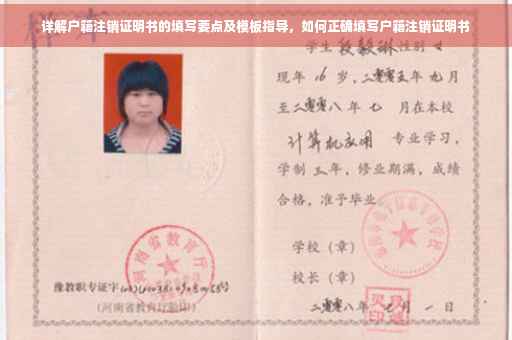 详解户籍注销证明书的填写要点及模板指导，如何正确填写户籍注销证明书
学生 段毅琳 性别 女
现年 16 岁，二零零五年 九月
至二零零八年 七 月在本校
计算机应用 专业学习，
学制 三年，修业期满，成绩
合格，准予毕业
学校（章）
校长（章）
二零零八年 七月 一日
河南省教育厅
豫教职专证字
（河南省教育厅验印）